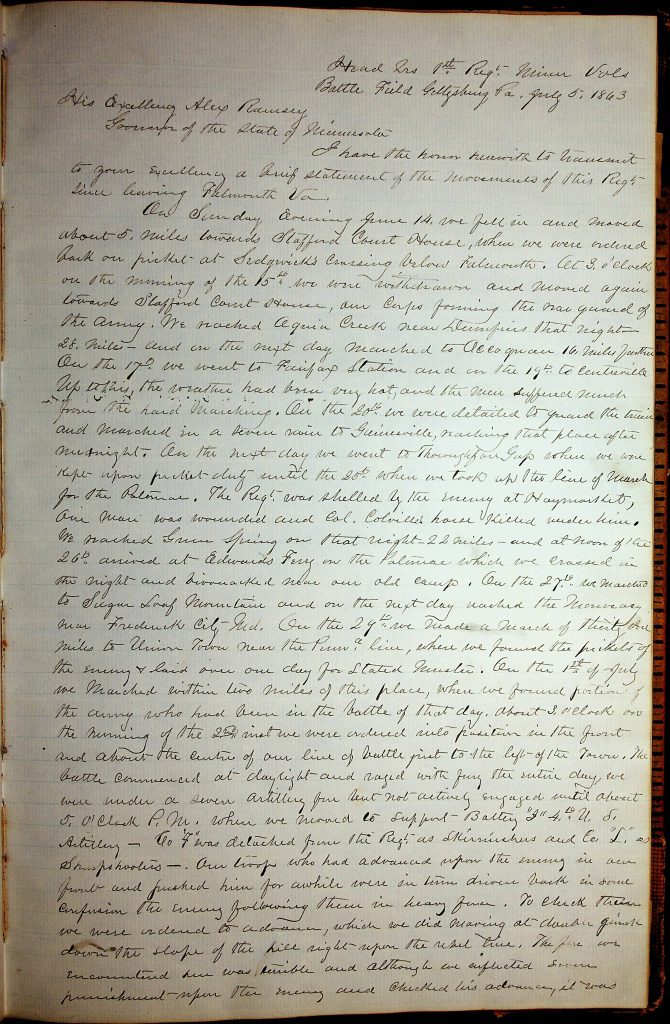 Head Qrs 1st Regt Minn Vols
Battle Field Gettysburg Pa. July 5, 1863
His Excellency Alex Ramsey
Governor of the State of Minnesota
I have the honor herewith to transmit
to your Excellency a brief statement of the movements of this Regt
since leaving Falmouth Va.
On Sunday Evening June 14, we fell in and moved
about 5. miles towards Stafford Court House, when we were ordered
back on picket at Sedgwick's Crossing below Falmouth. At 3. o'clock
on the morning of the 15th we were withdrawn and moved again
towards Stafford Court House, our Corps forming the rear guard of
the Army. We reached Aquia Creek near Dumfries that night
28 miles - and on the next day marched to Occoquan 16 miles further
On the 17th we went to Fairfax Station and on the 19th to Centreville
Up to this, the weather had been very hot, and the men suffered much
from the hard marching. On the 20th we were detailed to guard the train
and marched in a severe rain to Gainesville, reaching that place after
midnight. On the next day we went to Thoroughfare Gap where we were
kept upon picket duty until the 25th when we took up the line of march
for the Potomac. The Regt was shelled by the enemy at Haymarket,
one man was wounded and Col. Colville's horse killed under him.
We reached Gum Spring on that night 22 miles - and at noon of the
26th arrived at Edwards Ferry on the Potomac which we crossed in
the night and bivouacked near our old camp. On the 27th we marched
to Sugar Loaf Mountain and on the next day reached the Monocacy
near Frederick City Md. On the 29th we made a march of thirty one
miles to Union Town near the Penna line, where we found the pickets of
the enemy & laid over one day for Stated Muster. On the 1st of July
we marched within two miles of this place, when we found portion of
the army who had been in the battle of that day. About 3 o'clock on
the morning of the 2nd inst we were ordered into position in the front
and about the centre of our line of battle just to the left of the Town. The
battle commenced at daylight and raged with fury the entire day, we
were under a severe artillery fire but not actively engaged until about
5. O'Clock P.M. when we moved to support Battery "I" 4th U.S.
Artillery - Co "F" was detached from the Regt as skirmishers and Co "L" as
Sharpshooters -. Our troops who had advanced upon the enemy in our
front and pushed him for awhile were in turn driven back in some
confusion the enemy following them in heavy force. To check them
we were ordered to advance, which we did moving at double quick
down the slope of the hill right upon the rebel line. The fire we
encountered here was terrible and although we inflicted severe
punishment upon the enemy and checked his advance, it was